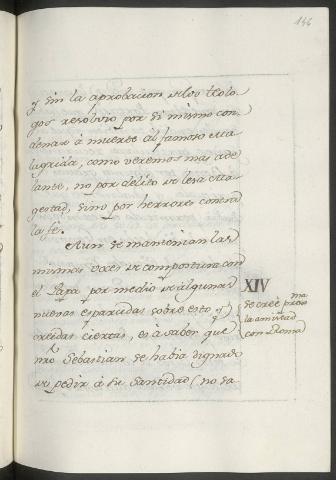 146
y sin la aprobacion de los Teolo-
gos resolvio por si mismo con-
denar à muerte al famoso Ma-
lagrida, como veremos mas ade-
lante, no por delito de lesa Ma-
gestad, sino por herrores contra
la fè.
Aun se mantenian las
mismas voces de compostura con
el Papa por medio de algunas
nuevas esparcidas sobre esto, y
creidas ciertas, es à saber que
nro Sebastian se habia dignado
de pedir à su Santidad (no sa-
XIV
Se cree proxima
la amistad
con Roma